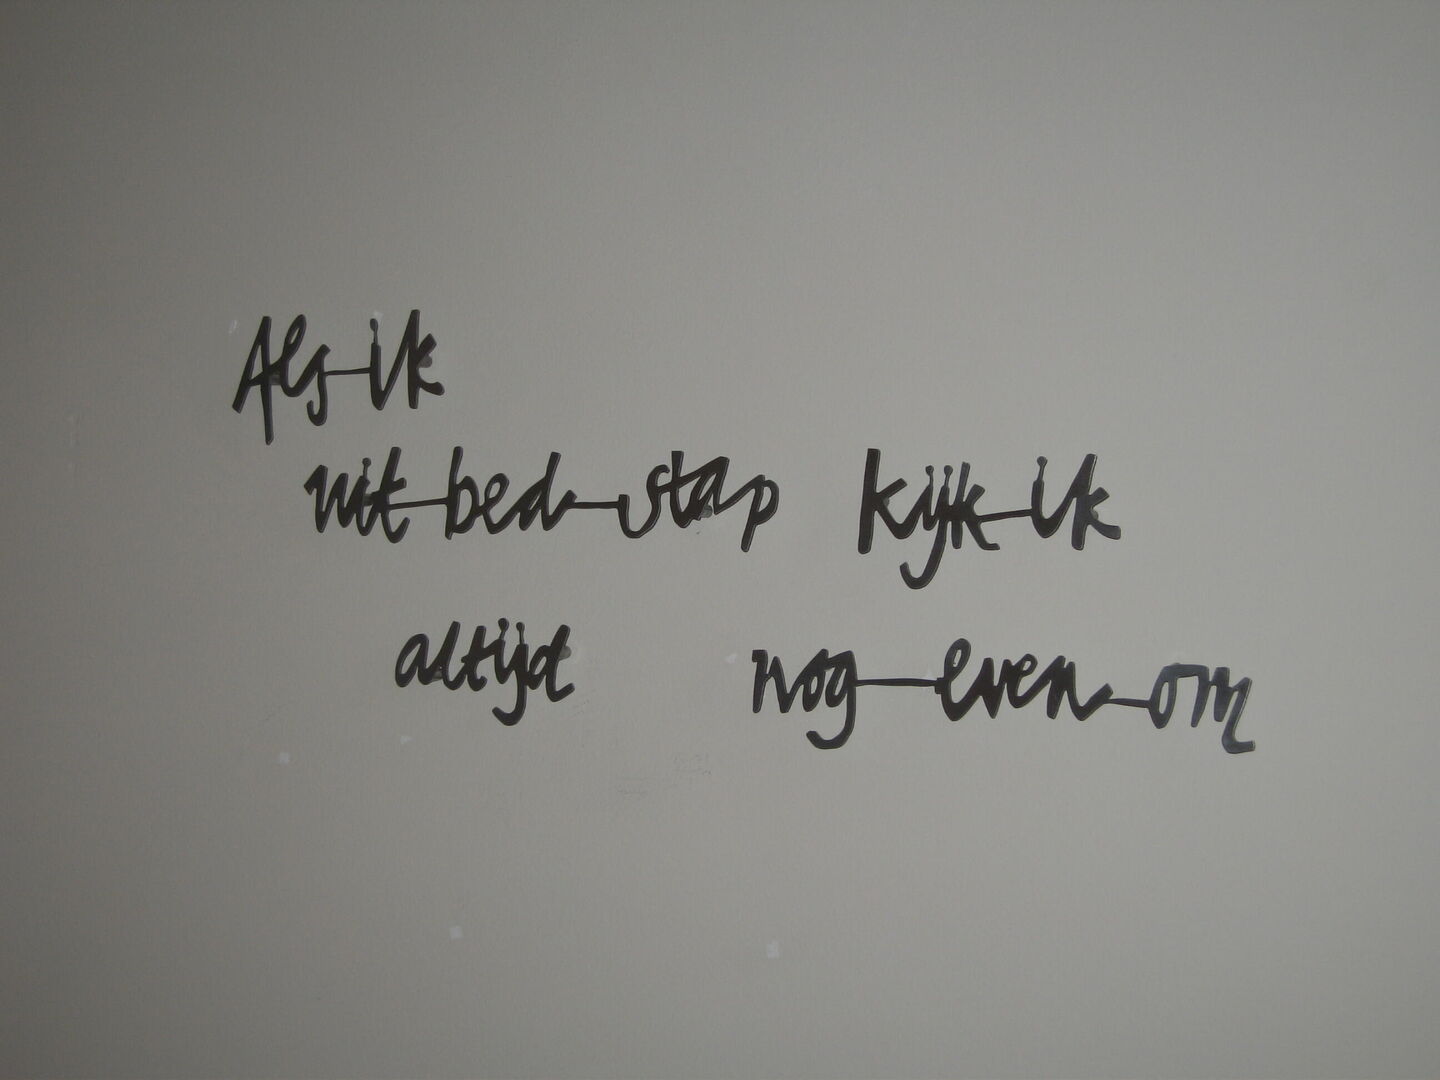 Als ik
uit bed stap kijk ik
altijd nog even om